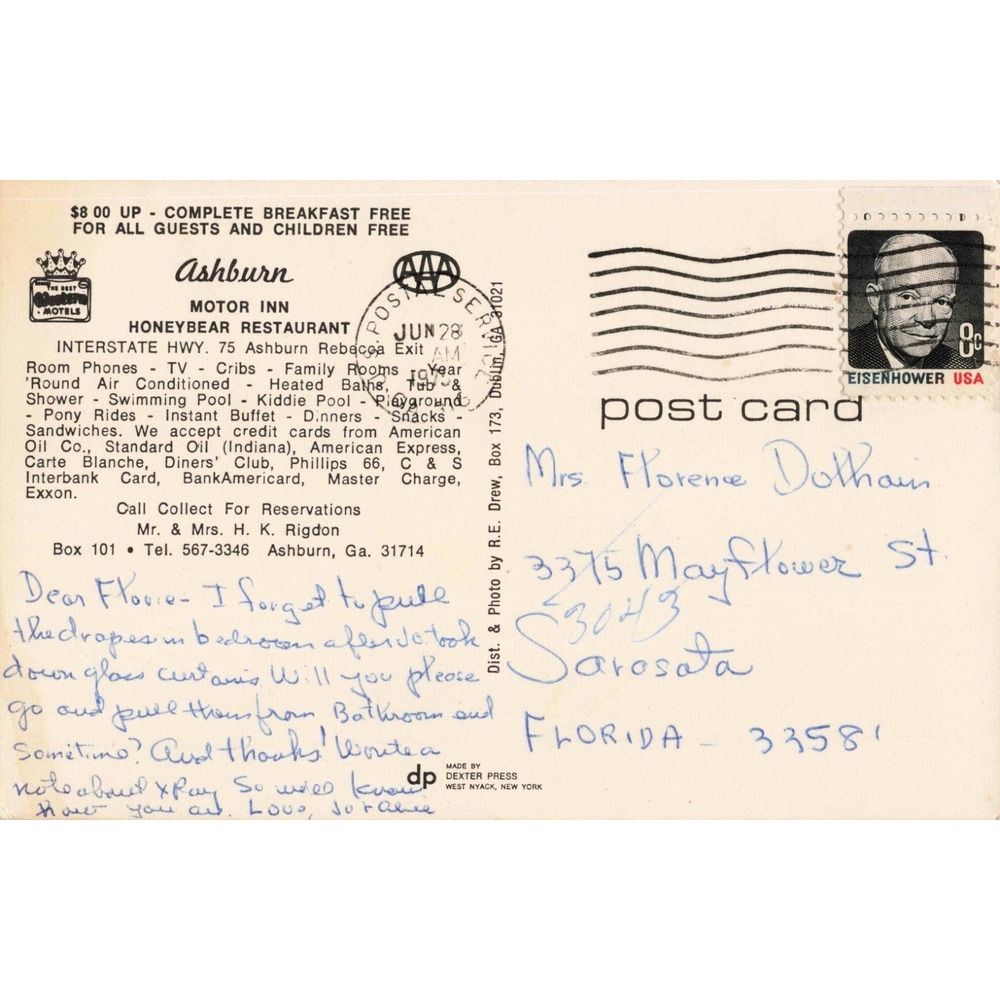 $8 00 UP - COMPLETE BREAKFAST FREE
FOR ALL GUESTS AND CHILDREN FREE
THE BEST
Western
MOTELS
Ashburn
AAA
MOTOR INN
HONEYBEAR RESTAURANT
INTERSTATE HWY. 75 Ashburn Rebecca Exit
Room Phones - TV - Cribs - Family Rooms - Year
'Round Air Conditioned - Heated Baths, Tub &
Shower - Swimming Pool - Kiddie Pool - Playground
- Pony Rides - Instant Buffet - Dinners - Snacks -
Sandwiches. We accept credit cards from American
Oil Co., Standard Oil (Indiana), American Express,
Carte Blanche, Diners' Club, Phillips 66, C & S
Interbank Card, BankAmericard, Master Charge,
Exxon.
Call Collect For Reservations
Mr. & Mrs. H. K. Rigdon
Box 101 • Tel. 567-3346 Ashburn, Ga. 31714
Dear Florie - I forget to pull
the drapes in bedroom after Jo took
down glass curtains. Will you please
go and pull them from Bathroom end
Sometime? And thanks! Wrote a
note about XRay So will know
how you are. Love,
Dist. & Photo by R.E. Drew, Box 173, Dublin, GA 31021
dp
MADE BY
DEXTER PRESS
WEST NYACK, NEW YORK
U.S. POSTAL SERVICE
JUN 28
AM
EISENHOWER USA
8c
post card
Mrs Florence
3375 Mayflower St.
3043
Sarosata
FLORIDA - 33581